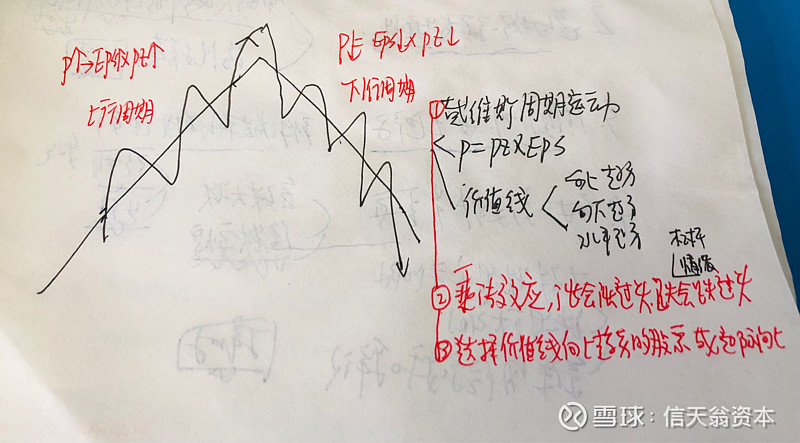 P↑→EPS↑×PE↑
上行周期
P↓ EPS↓×PE↓
下行周期
①戴维斯周期运动
P=PE×EPS
价值线
向上趋势
向下趋势
水平趋势
杠杆
情绪
②乘法效应,涨会涨过头跌会跌过头
③选择价值线向上趋势的股票或
向上
雪球:信天翁资本